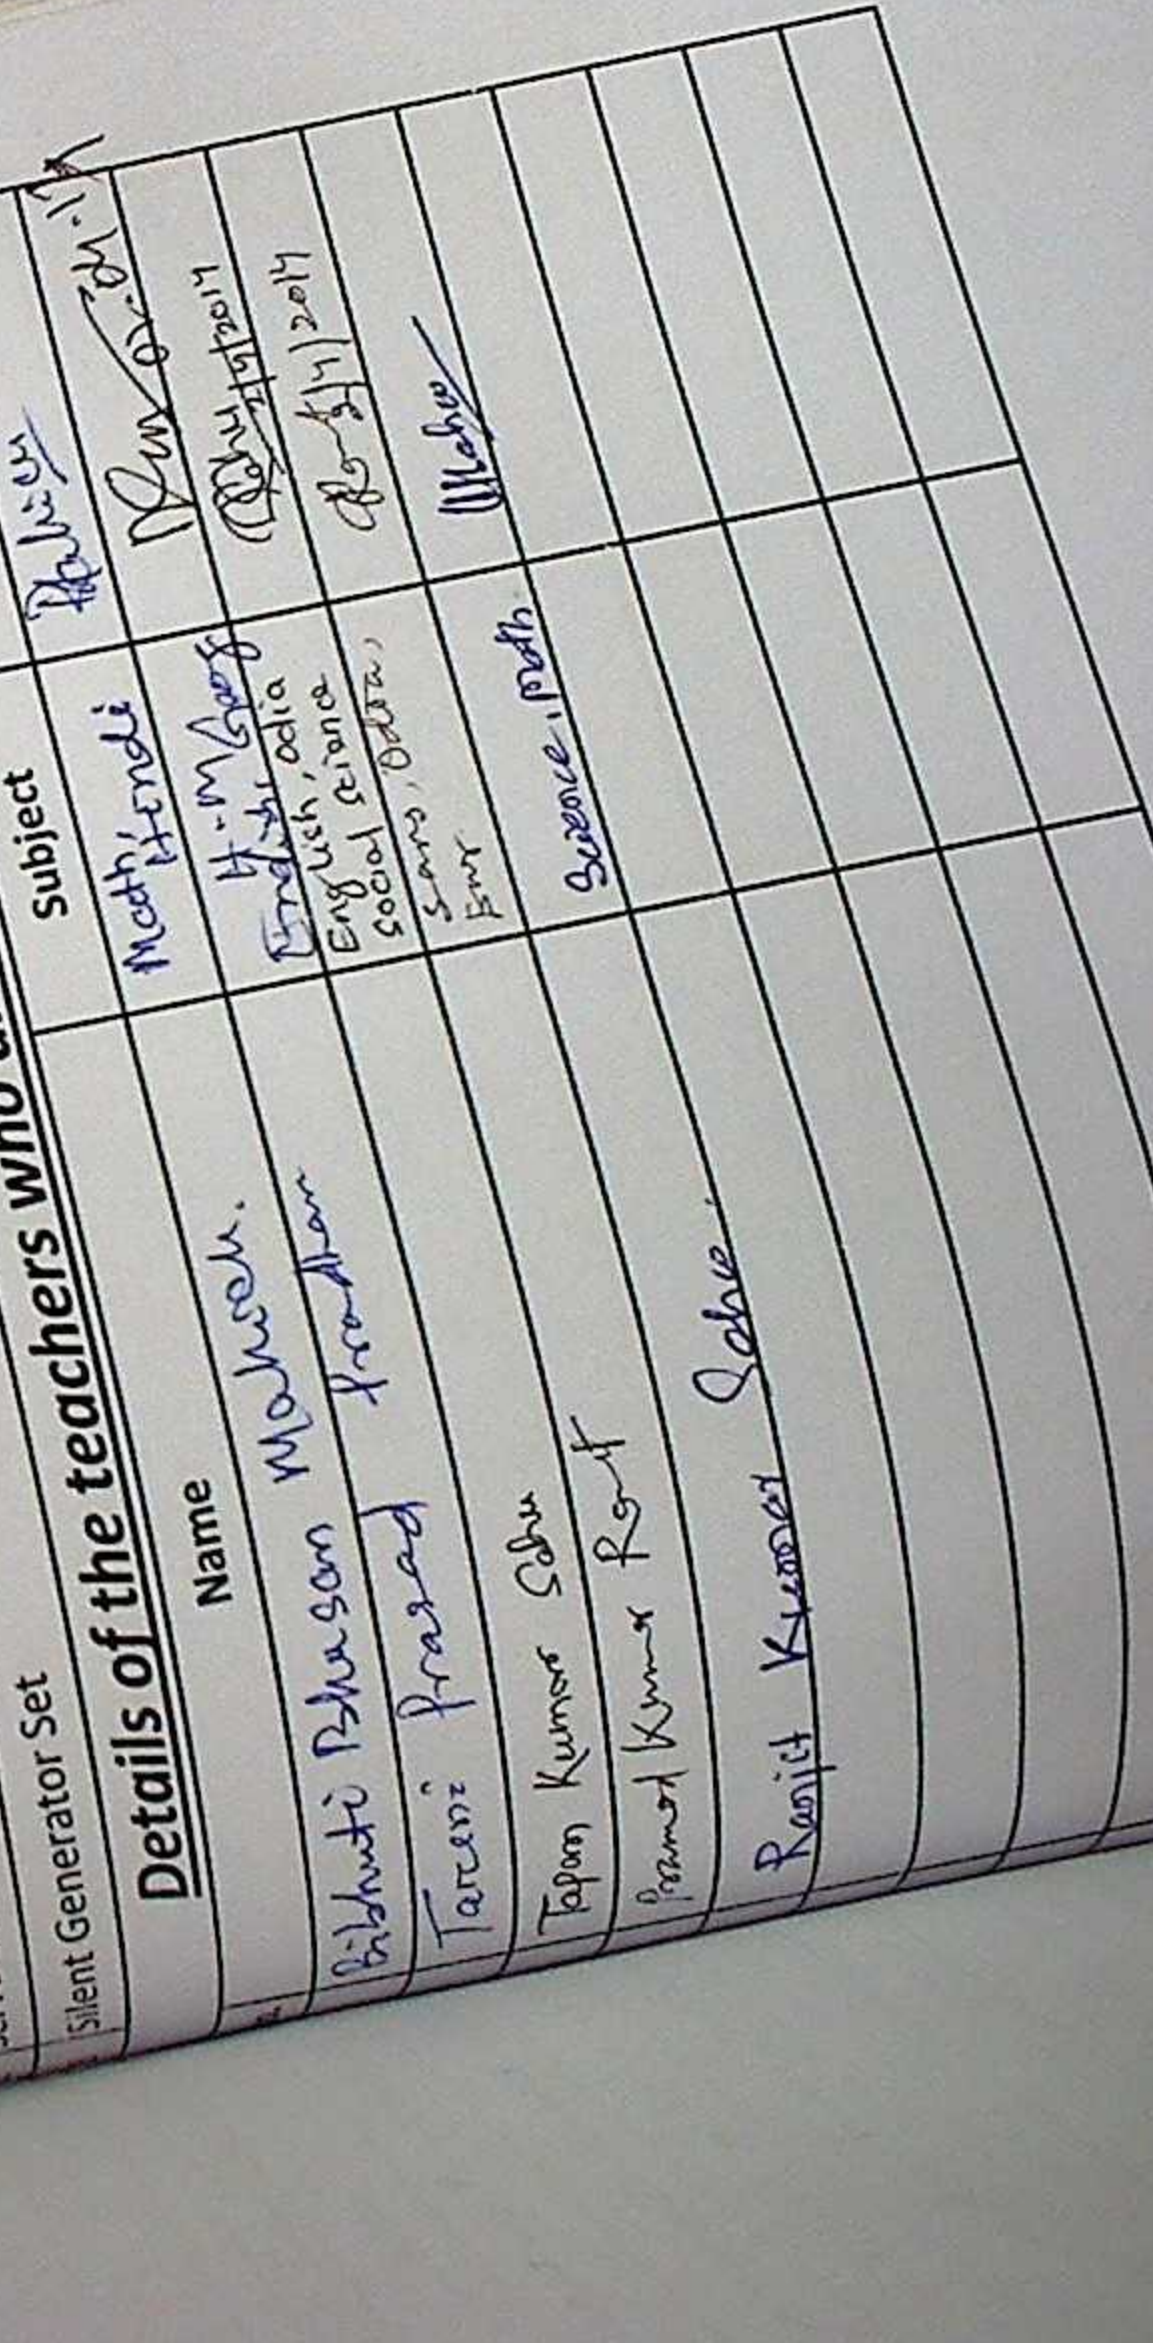 Silent Generator Set
Details of the teachers who
Name
Subject
Bibhuti Bhusan Mahick.
Math, Hindi
Tareni Prasad Pradhan
H.M
Tapan Kumar Sahu
English, odia
social science
2/4/2014
Pramod Kumar Rout
Sans, Odia,
Env
5/4/2014
Ranjit Kumar Sahoo.
Science, Math.